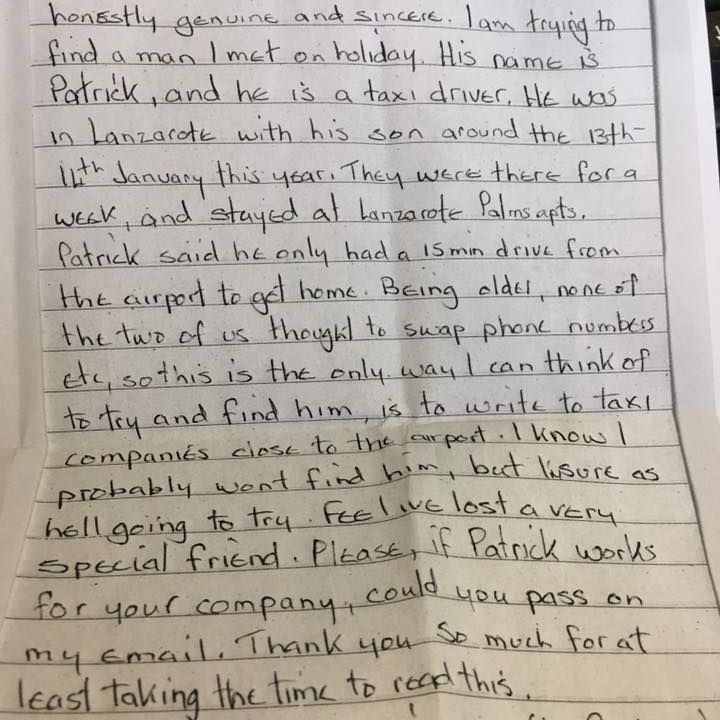 honestly genuine and sincere. I am trying to
find a man I met on holiday. His name is
Patrick, and he is a taxi driver. He was
in Lanzarote with his son around the 13th-
14th January this year. They were there for a
week, and stayed at Lanzarote Palms apts.
Patrick said he only had a 15min drive from
the airport to get home. Being older, none of
the two of us thought to swap phone numbers
etc, so this is the only way I can think of
to try and find him, is to write to taxi
companies close to the airport. I know I
probably wont find him, but I'm sure as
hell going to try. Feel ive lost a very
special friend. Please, if Patrick works
for your company, could you pass on
my email. Thank you so much for at
least taking the time to read this.